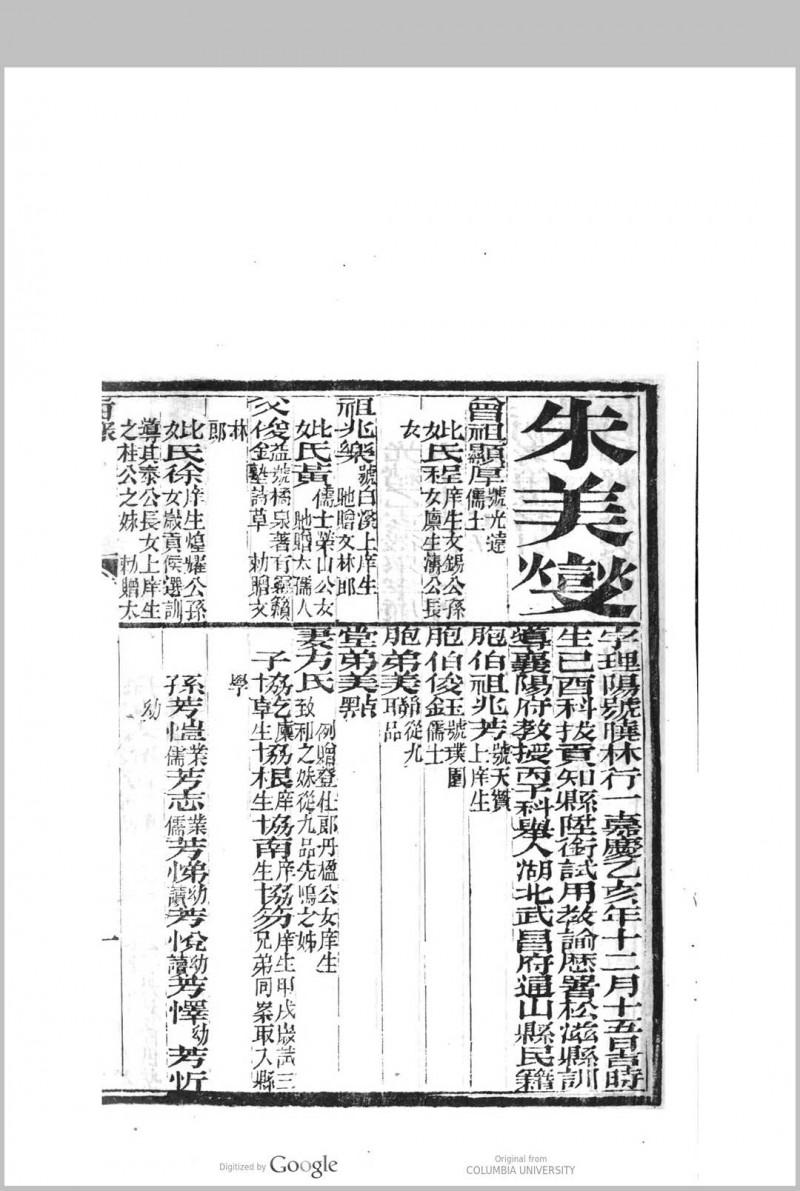 朱美燮
字理陽號曉林行一嘉慶乙亥年十二月十五日吉時
生己酉科拔貢知縣陞銜試用敎諭歷署松滋縣訓
導襄陽府教授丙子科舉人湖北武昌府通山縣民籍
曾祖顯厚號光達
儒士
妣氏程庠生文錫公孫
女廩生濤公長
女
祖兆樂號白溪上庠生
貤贈文林郎
妣氏黃儒士榮山公女
貤贈太孺人
父俊金號橘泉著有
詩草 勅贈文
林
郎
妣氏徐庠生煌耀公孫
女歲貢候選訓
導其泰公長女上庠生
之桂公之妹 勅贈太
胞伯祖兆芳號天爵
上庠生
胞伯俊鈺號璞園
儒士
胞弟美從九
品
堂弟美點
妻方氏例贈登仕郎丹楹公女庠生
致和之妹從九品先鳴之姊
子
庠生甲戌歲試三
兄弟同案取入縣
學
孫芳愷業儒芳志業儒芳悌幼讀芳悅幼讀芳懌幼芳忻
幼
一
Digitized by Google
Original from
COLUMBIA UNIVERSITY